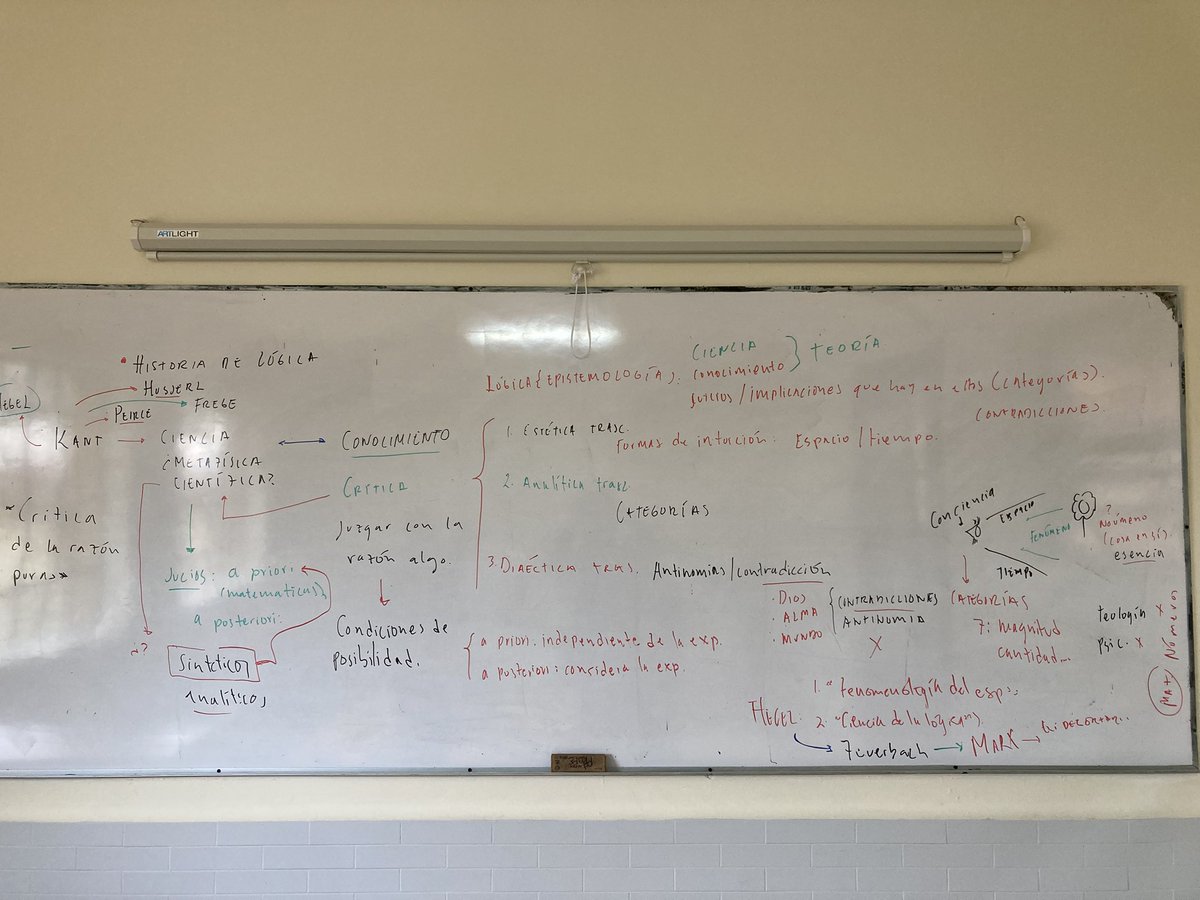 ARTLIGHT
• HISTORIA DE LÓGICA
HEGEL
HUSSERL
PEIRCE
FREGE
KANT
CIENCIA
¿METAFÍSICA
CIENTÍFICA?
"Crítica
de la razón
pura"
Juicios: a priori
(matemáticas)
a posteriori:
¿?
Sintéticos
Analíticos
CONOCIMIENTO
CRÍTICA
Juzgar con la
razón algo.
Condiciones de
posibilidad.
a priori: independiente de la exp.
a posteriori: considera la exp.
CIENCIA
LÓGICA (EPISTEMOLOGÍA): conocimiento
TEORÍA
juicios/implicaciones que hay en estos (categorías).
CONTRADICCIONES.
1. ESTÉTICA TRASC.
Formas de intuición: Espacio/tiempo.
2. Analítica trasc.
CATEGORÍAS
3. DIALÉCTICA TRAS.
Antinomias/contradicción
• DIOS
• ALMA
• MUNDO
CONTRADICCIONES
ANTINOMIA
X
Conciencia
ESPACIO
FENÓMENO
TIEMPO
?
Noúmeno
(cosa en sí).
esencia
CATEGORÍAS
7: magnitud
cantidad...
teología X
Psic. X
MAT
Números
HEGEL
1. "Fenomenología del esp.
2. "Ciencia de la lógica"
Feuerbach
MARX